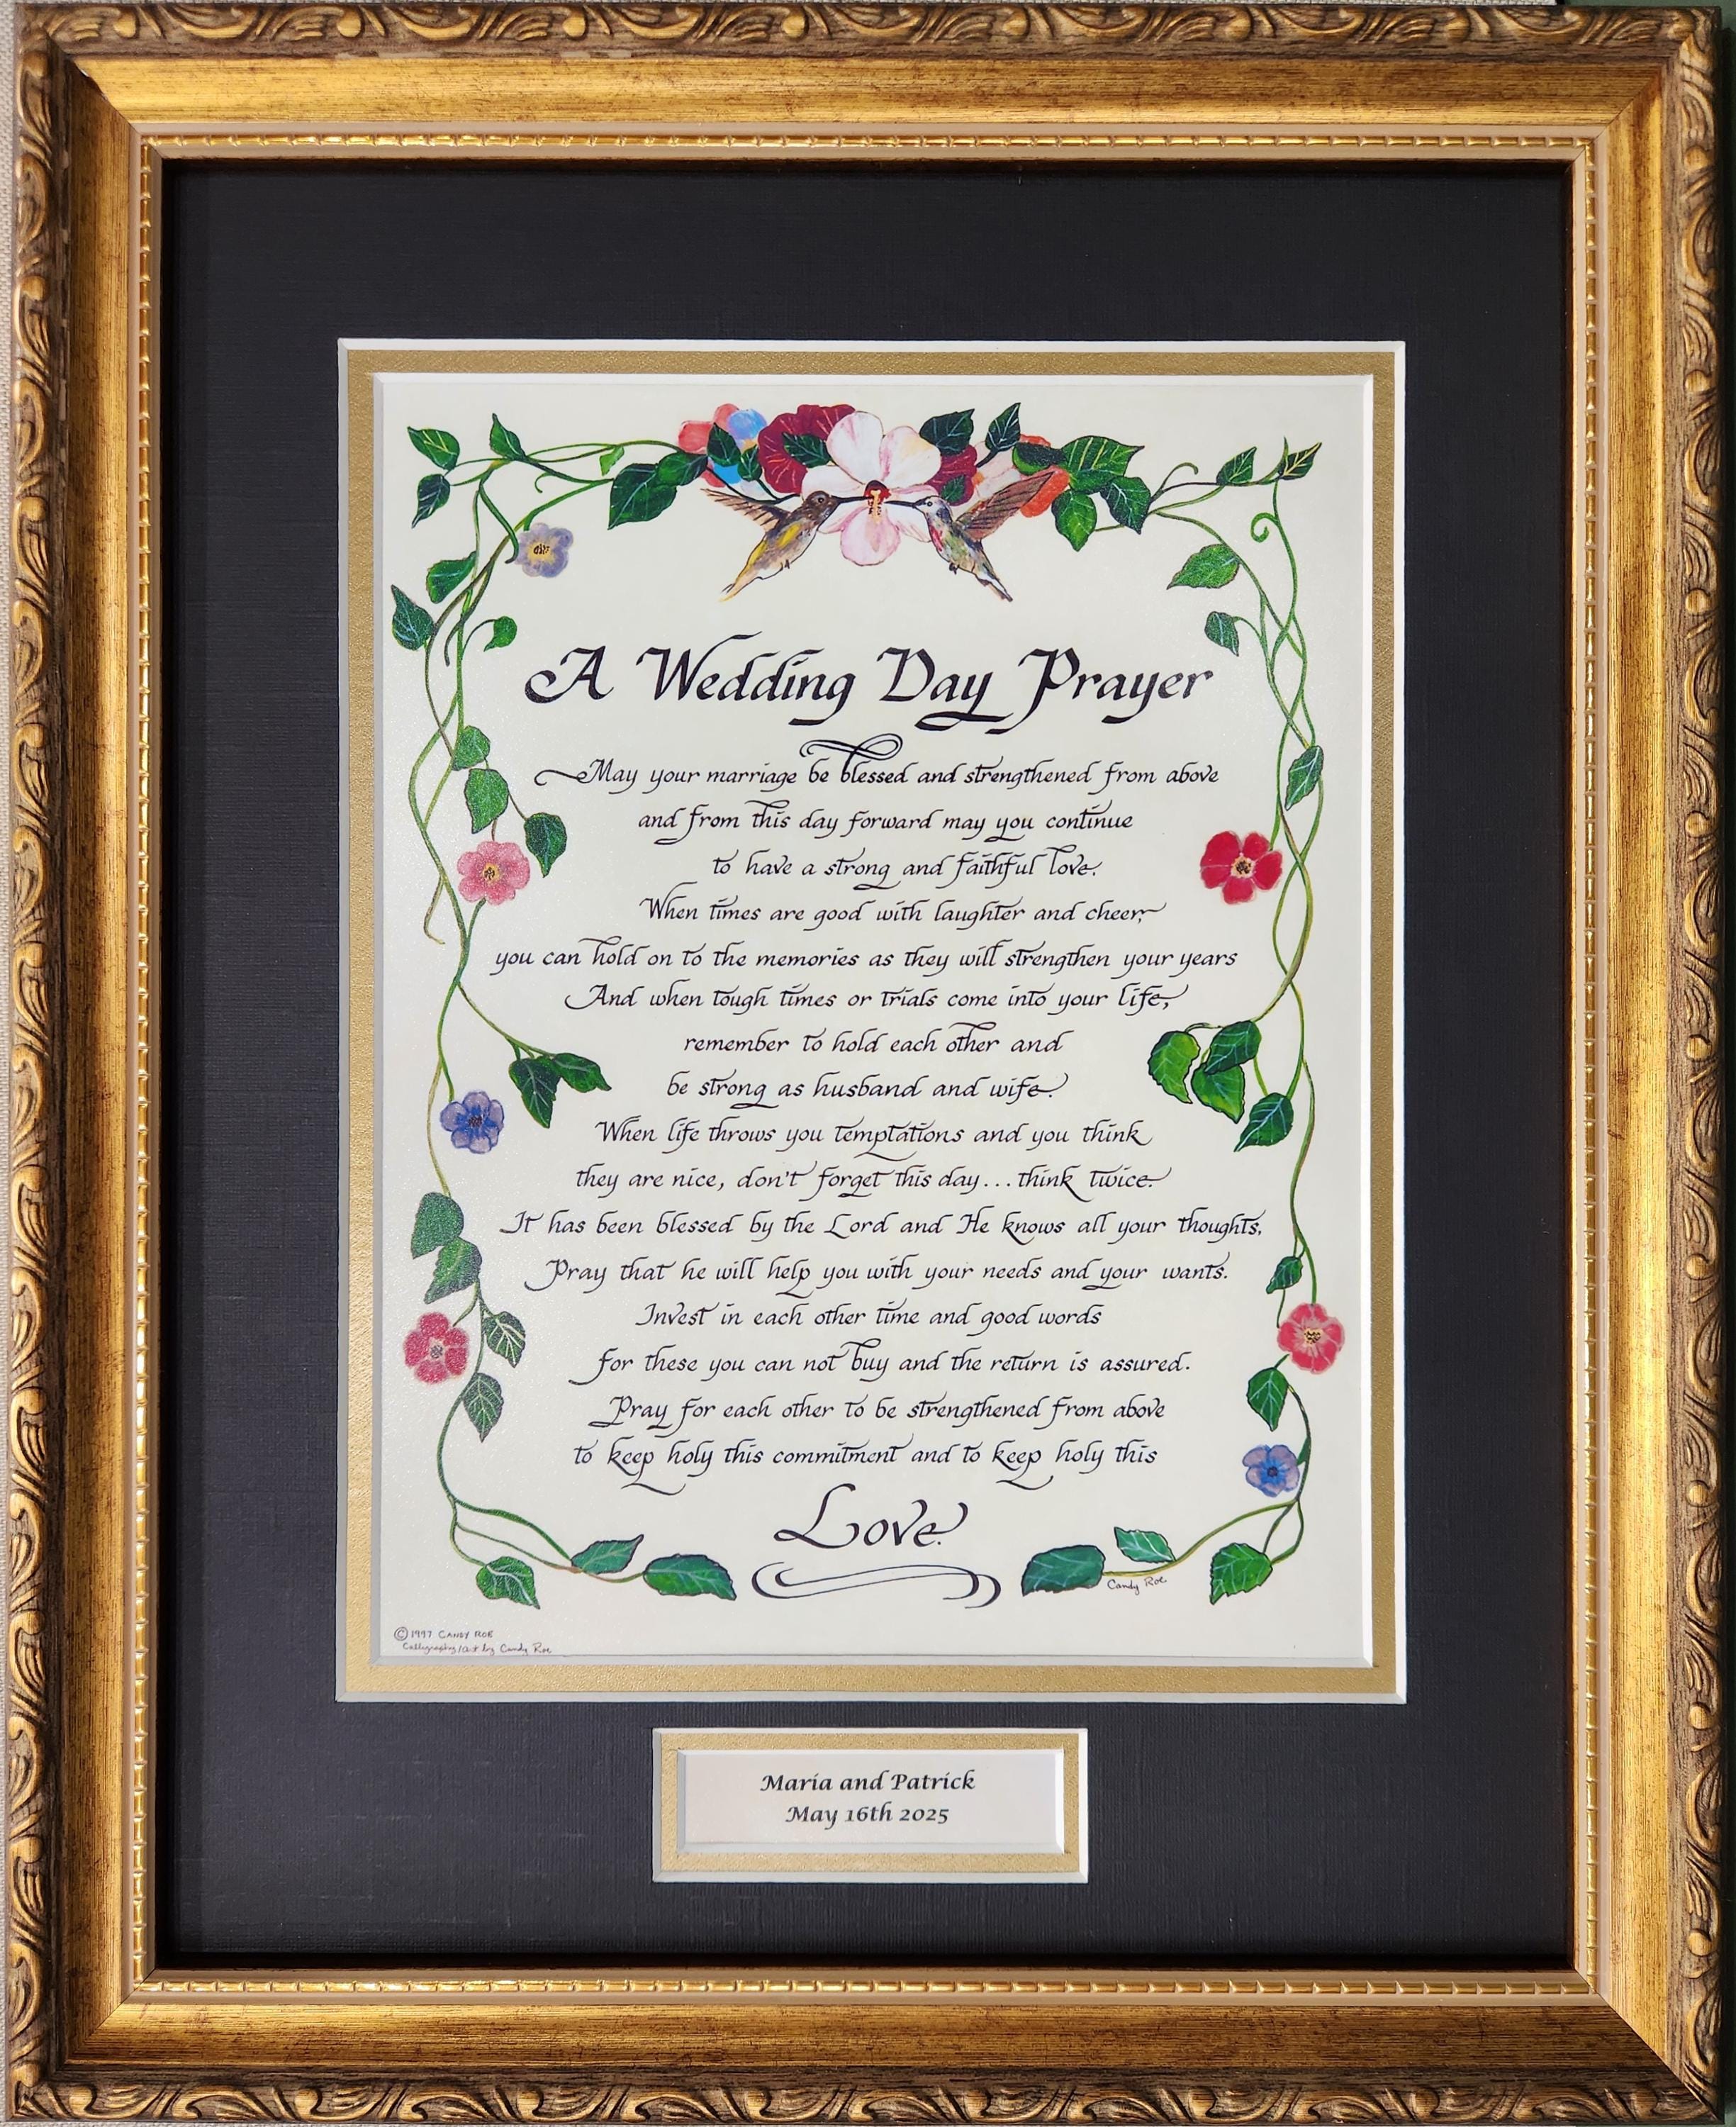 A Wedding Day Prayer
May your marriage be blessed and strengthened from above
and from this day forward may you continue
to have a strong and faithful love.
When times are good with laughter and cheer,
you can hold on to the memories as they will strengthen your years
And when tough times or trials come into your life,
remember to hold each other and
be strong as husband and wife.
When life throws you temptations and you think
they are nice, don't forget this day... think twice.
It has been blessed by the Lord and He knows all your thoughts,
Pray that he will help you with your needs and your wants.
Invest in each other time and good words
for these you can not buy and the return is assured.
Pray for each other to be strengthened from above
to keep holy this commitment and to keep holy this
Love.
Candy Roe
© 1997 CANDY ROE
Calligraphy/Art by Candy Roe
Maria and Patrick
May 16th 2025